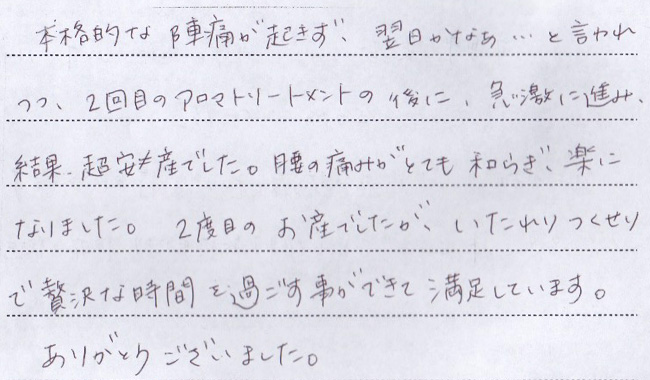 本格的な陣痛が起きず、翌日かなぁ…と言われ
つつ、2回目のアロマトリートメントの後に、急激に進み、
結果、超安産でした。腰の痛みがとても和らぎ、楽に
なりました。 2度目のお産でしたが、いたれりつくせり
で贅沢な時間を過ごす事ができて満足しています。
ありがとうございました。